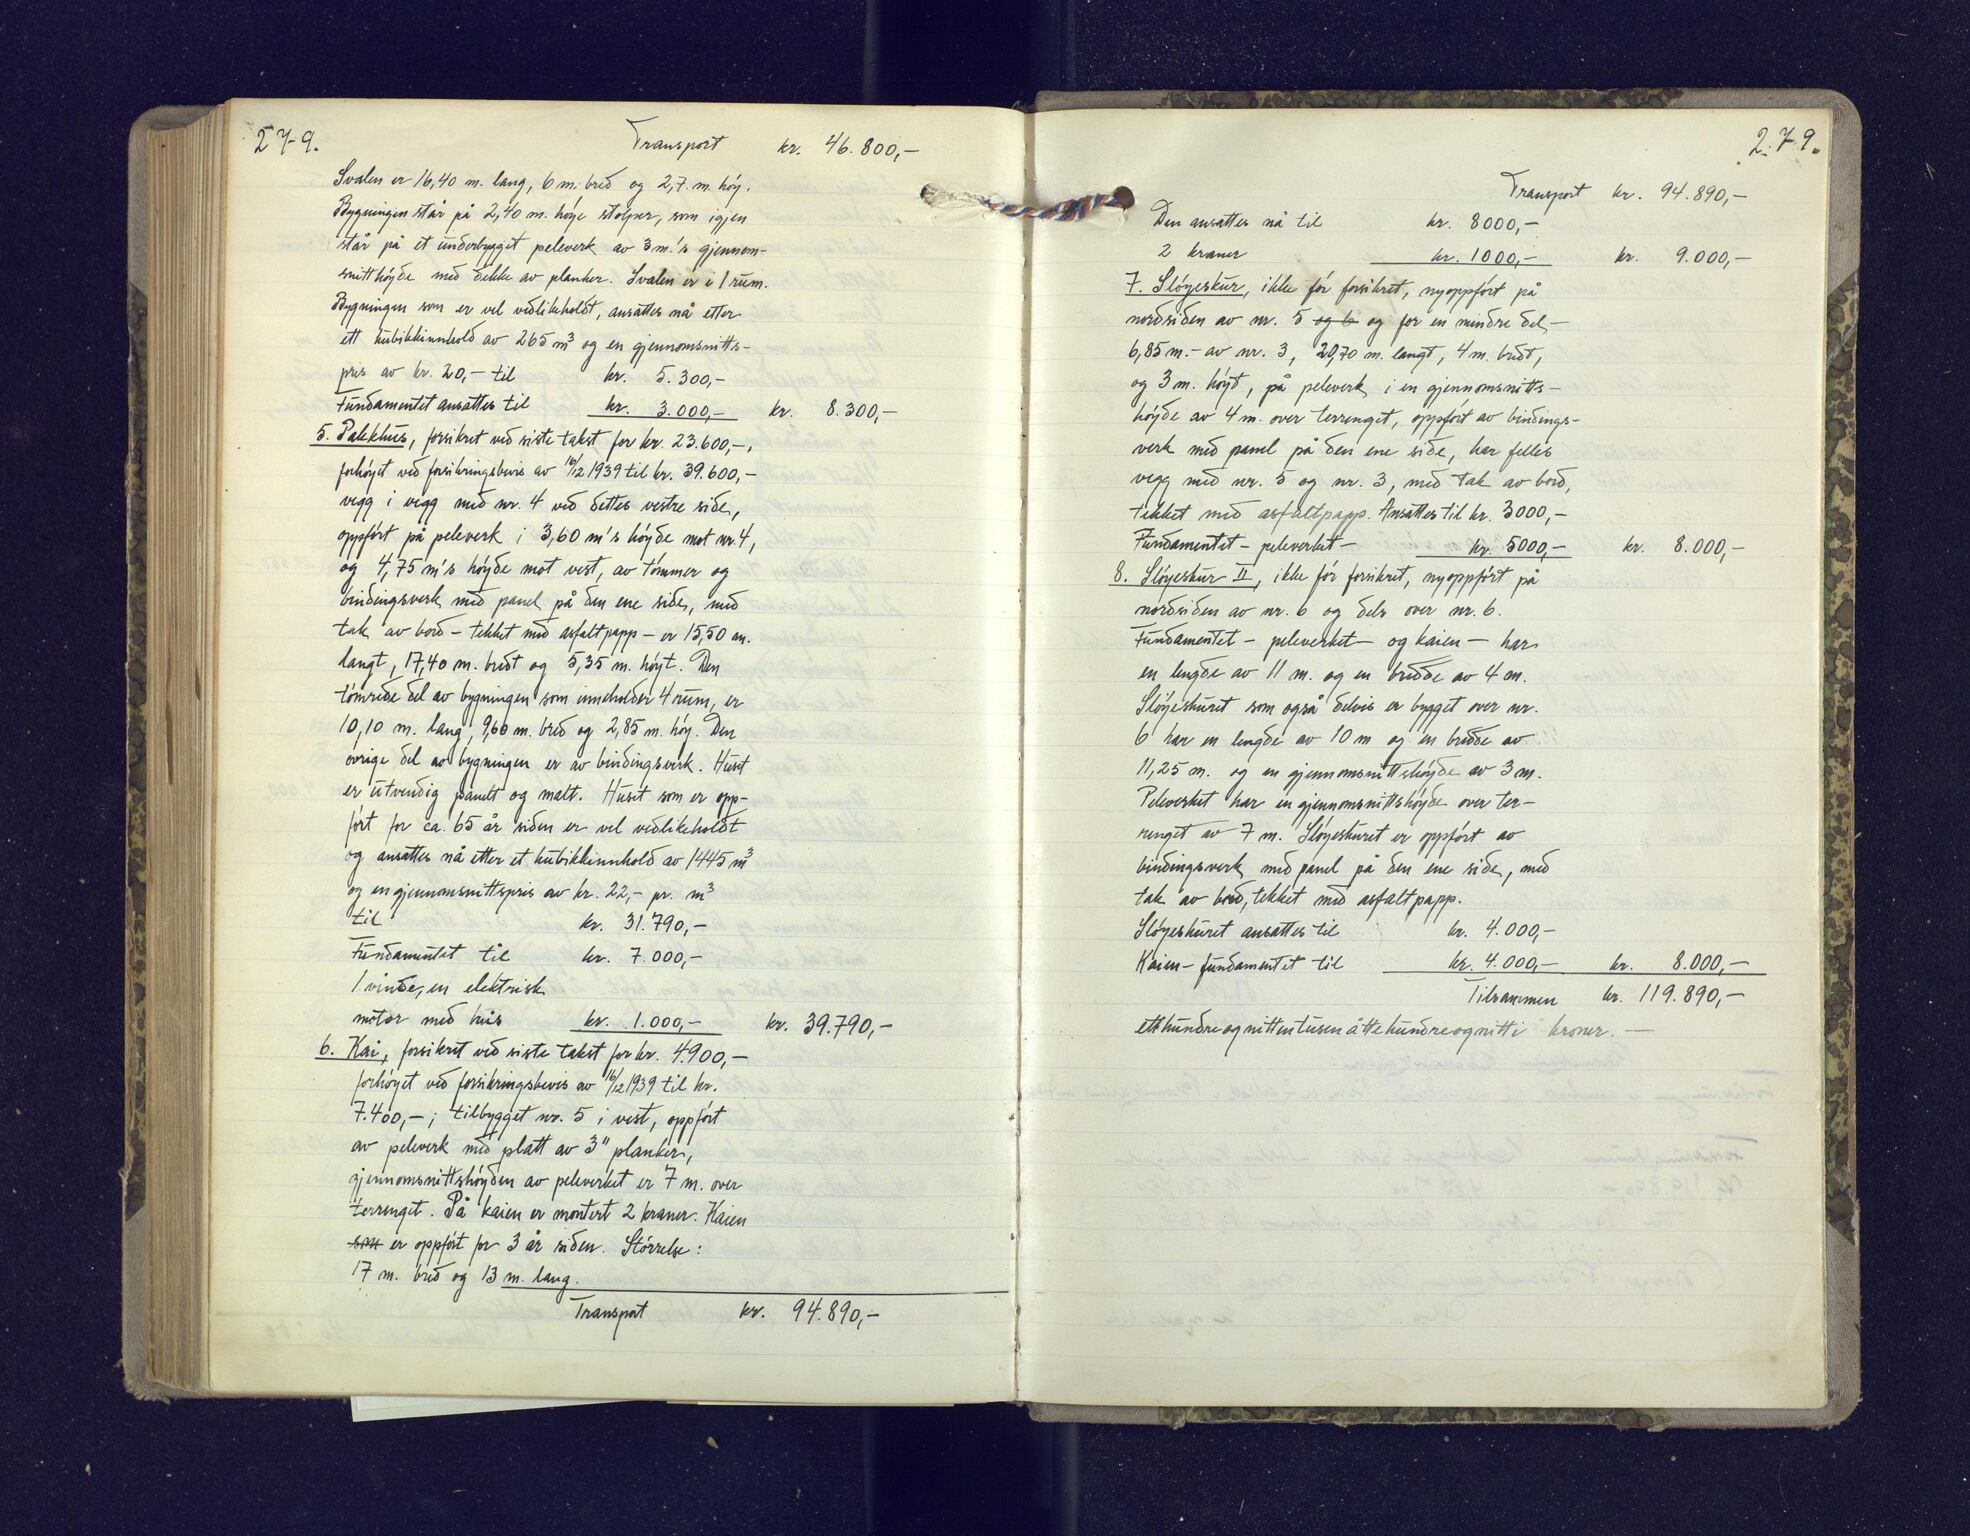 279.
Transport kr. 46.800,-
Svalen er 16,40 m. lang, 6 m. bred og 2,7. m. høy.
Bygningen står på 2,40 m. høye stolper, som igjen
står på et underbygget peleverk av 3 m.'s gjennom-
snitthøyde med dekke av planker. Svalen er i 1 rum.
Bygningen som er vel vedlikeholdt, ansattes nå etter
ett kubikkinnhold av 265 m³ og en gjennomsnitts-
pris av kr. 20,- til kr. 5.300,-
Fundamentet ansattes til kr. 3.000,- kr. 8.300,-
5. Pakkhus, forsikret ved siste takst for kr. 23.600,-,
forhøyet ved forsikringsbevis av 16/12 1939 til kr. 39.600,-
vegg i vegg med nr. 4 ved dettes vestre side,
oppført på peleverk i 3,60 m's høyde mot nr. 4,
og 4,75 m's høyde mot vest, av tømmer og
bindingsverk med panel på den ene side, med
tak av bord - tekket med asfaltpapp - er 15,50 m.
langt, 17,40 m. bredt og 5,35 m. høyt. Den
tømrede del av bygningen som inneholder 4 rum, er
10,10 m. lang, 9,60 m. bred og 2,85 m. høy. Den
øvrige del av bygningen er av bindingsverk. Huset
er utvendig panelt og malt. Huset som er opp-
ført for ca. 65 år siden er vel vedlikeholdt
og ansattes nå etter et kubikkinnhold av 1445 m³
og en gjennomsnittspris av kr. 22,- pr. m³
til kr. 31.790,-
Fundamentet til kr. 7.000,-
1 vinde, en elektrisk
motor med hus kr. 1.000,- kr. 39.790,-
6. Kai, forsikret ved siste takst for kr. 4.900,-
forhøyet ved forsikringsbevis av 16/12 1939 til kr.
7.400,-; tilbygget nr. 5 i vest, oppført
av peleverk med platt av 3" planker,
gjennomsnittshøyden av peleverket er 7 m. over
terrenget. På kaien er montert 2 kraner. Kaien
som er oppført for 3 år siden. Størrelse:
17 m. bred og 13 m. lang.
Transport kr. 94.890,-
279.
Transport kr. 94.890,-
Den ansattes nå til kr. 8000,-
2 kraner kr. 1000,- kr. 9.000,-
7. Sløyeskur, ikke før forsikret, nyoppført på
nordsiden av nr. 5 og 6 og for en mindre del,-
6,85 m.- av nr. 3, 20,70 m. langt, 4 m. bredt,
og 3 m. høyt, på peleverk i en gjennomsnitts-
høyde av 4 m. over terrenget, oppført av bindings-
verk med panel på den ene side, har felles
vegg med nr. 5 og nr. 3, med tak av bord,
tekket med asfaltpapp. Ansattes til kr. 3000,-
Fundamentet - peleverket - kr. 5000,- kr. 8.000,-
8. Sløyeskur II, ikke før forsikret, nyoppført på
nordsiden av nr. 6 og dels over nr. 6.
Fundamentet - peleverket - og kaien - har
en lengde av 11 m. og en bredde av 4 m.
Sløyeskuret som også delvis er bygget over nr.
6 har en lengde av 10 m og en bredde av
11,25 m. og en gjennomsnittshøyde av 3 m.
Peleverket har en gjennomsnittshøyde over ter-
renget av 7 m. Sløyeskuret er oppført av
bindingsverk med panel på den ene side, med
tak av bord, tekket med asfaltpapp.
Sløyeskuret ansattes til kr. 4.000,-
Kaien - fundamentet til kr. 4.000,- kr. 8.000,-
Tilsammen kr. 119.890,-
etthundreognittentusenåttehundreognitti kroner. -